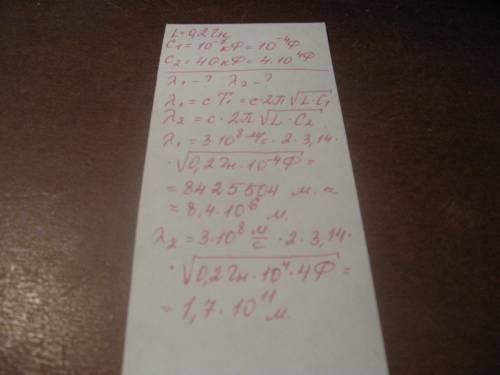 L=0,2Гн
C₁=10⁻⁷кФ=10⁻⁴Ф
C₂=40кФ=4·10⁴Ф
λ₁-? λ₂-?
λ₁=cT₁=c·2π√L·C₁
λ₂=c·2π√L·C₂
λ₁=3·10⁸м/с·2·3,14·
·√0,2Гн·10⁻⁴Ф=
=8425504 м.≈
≈8,4·10⁶ м.
λ₂=3·10⁸ м/с ·2·3,14·
·√0,2Гн·10⁴·4Ф=
=1,7·10¹¹ м.